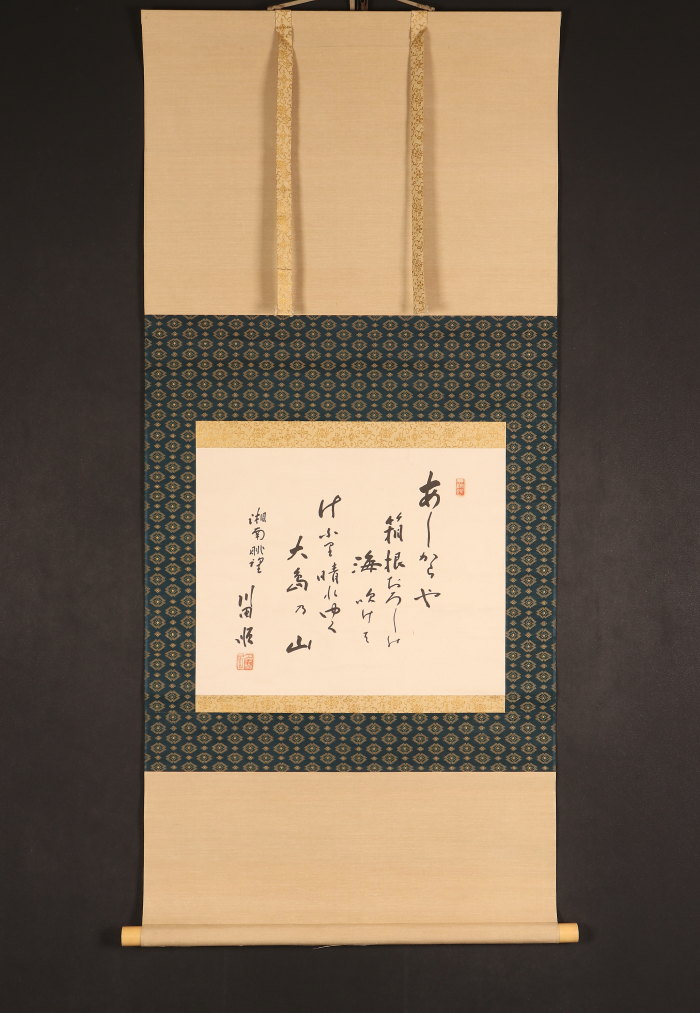 あしからや
箱根おろしの
海吹けは
けふ里晴れゆく
大島乃山
湘南眺望
川田順